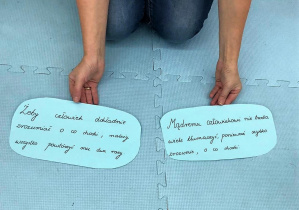 Żeby człowiek dokładnie
zrozumiał o co chodzi, należy
wszystko powtórzyć mu dwa razy
Mądremu człowiekowi nie trzeba
wiele tłumaczyć, ponieważ szybko
zrozumie, o co chodzi.